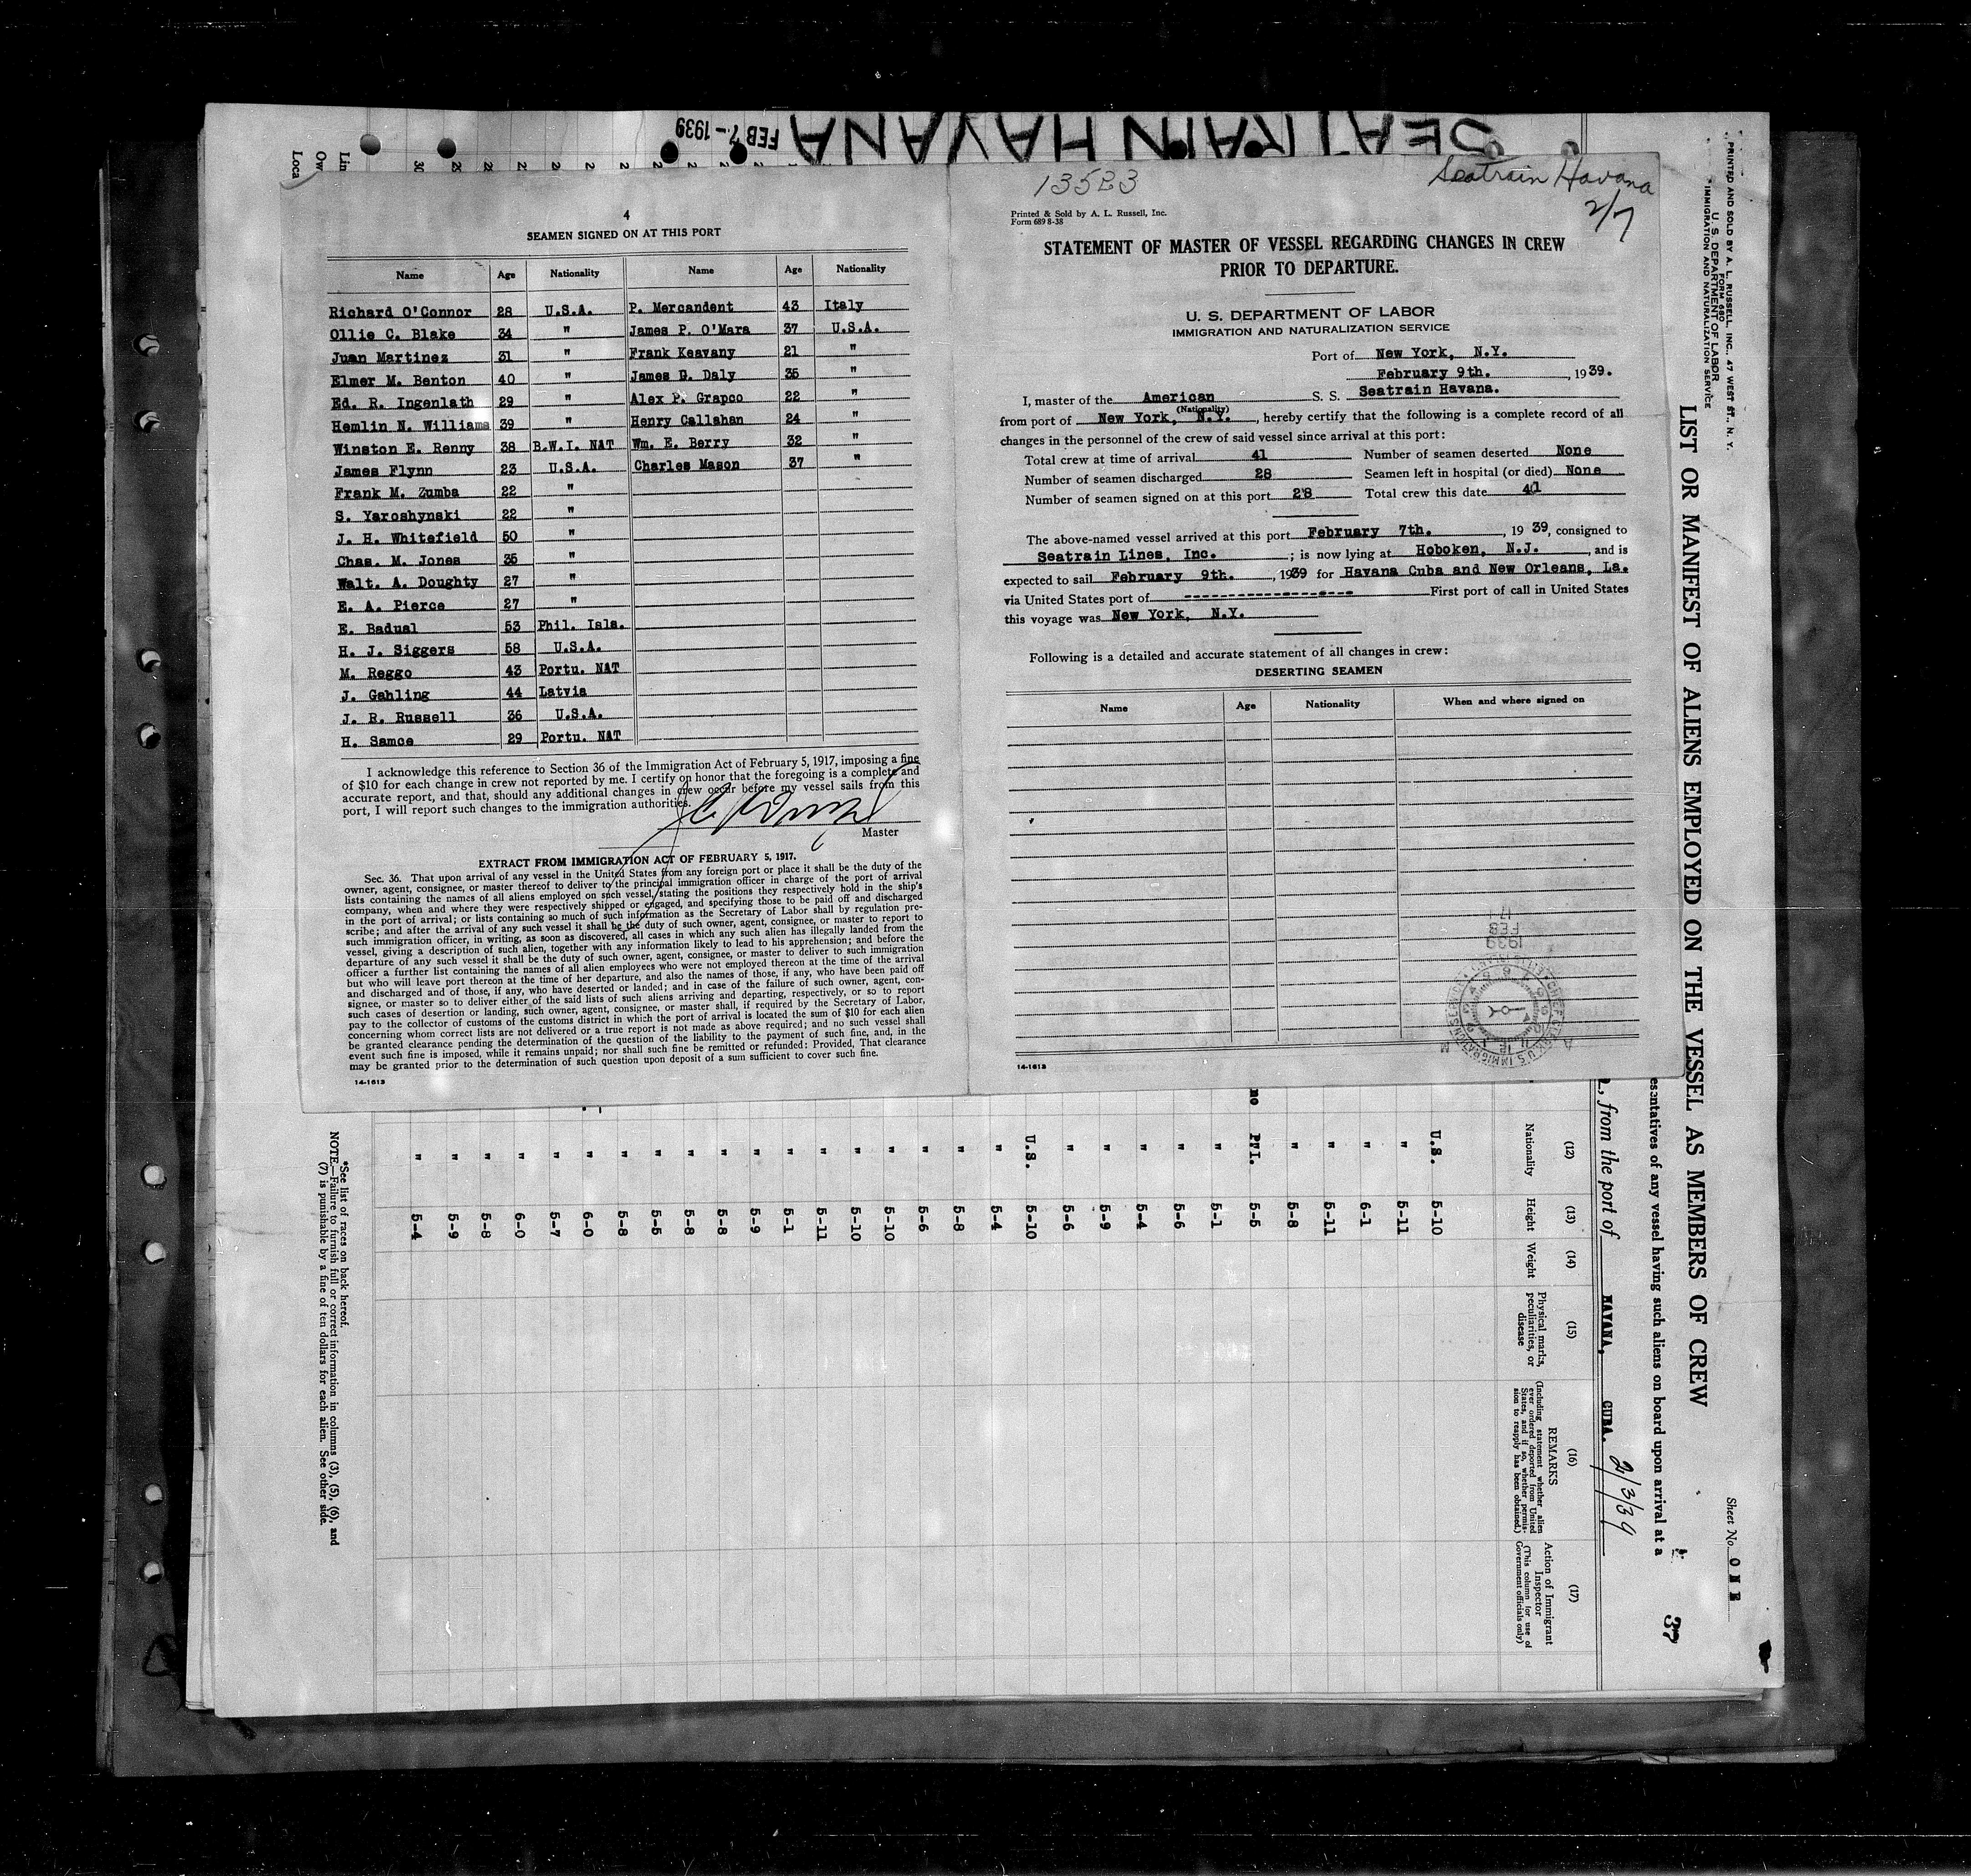 SEATRAIN HAVANA
FEB 7 - 1939
4
SEAMEN SIGNED ON AT THIS PORT
Name Age Nationality Name Age Nationality
Richard O'Connor 28 U.S.A. P. Mercandent 43 Italy
Ollie C. Blake 34 " James P. O'Mara 37 U.S.A.
Juan Martinez 31 " Frank Keavany 21 "
Elmer M. Benton 40 " James G. Daly 35 "
Ed. R. Ingenlath 29 " Alex P. Grapco 22 "
Hemlin N. Williams 39 " Henry Callahan 24 "
Winston E. Renny 38 B.W.I. NAT Wm. E. Berry 32 "
James Flynn 23 U.S.A. Charles Mason 37 "
Frank M. Zumba 22 "
S. Yaroshynski 22 "
J. H. Whitefield 50 "
Chas. M. Jones 35 "
Walt. A. Doughty 27 "
E. A. Pierce 27 "
E. Badual 53 Phil. Isls.
H. J. Siggers 58 U.S.A.
M. Reggo 43 Portu. NAT
J. Gahling 44 Latvia
J. R. Russell 36 U.S.A.
H. Samoe 29 Portu. NAT
I acknowledge this reference to Section 36 of the Immigration Act of February 5, 1917, imposing a fine
of $10 for each change in crew not reported by me. I certify on honor that the foregoing is a complete and
accurate report, and that, should any additional changes in crew occur before my vessel sails from this
port, I will report such changes to the immigration authorities.
Master
EXTRACT FROM IMMIGRATION ACT OF FEBRUARY 5, 1917.
Sec. 36. That upon arrival of any vessel in the United States from any foreign port or place it shall be the duty of the
owner, agent, consignee, or master thereof to deliver to the principal immigration officer in charge of the port of arrival
lists containing the names of all aliens employed on such vessel, stating the positions they respectively hold in the ship's
company, when and where they were respectively shipped or engaged, and specifying those to be paid off and discharged
in the port of arrival; or lists containing so much of such information as the Secretary of Labor shall by regulation pre-
scribe; and after the arrival of any such vessel it shall be the duty of such owner, agent, consignee, or master to report to
such immigration officer, in writing, as soon as discovered, all cases in which any such alien has illegally landed from the
vessel, giving a description of such alien, together with any information likely to lead to his apprehension; and before the
departure of any such vessel it shall be the duty of such owner, agent, consignee, or master to deliver to such immigration
officer a further list containing the names of all alien employees who were not employed thereon at the time of the arrival
but who will leave port thereon at the time of her departure, and also the names of those, if any, who have been paid off
and discharged and of those, if any, who have deserted or landed; and in case of the failure of such owner, agent, con-
signee, or master so to deliver either of the said lists of such aliens arriving and departing, respectively, or so to report
such cases of desertion or landing, such owner, agent, consignee, or master shall, if required by the Secretary of Labor,
pay to the collector of customs of the customs district in which the port of arrival is located the sum of $10 for each alien
concerning whom correct lists are not delivered or a true report is not made as above required; and no such vessel shall
be granted clearance pending the determination of the question of the liability to the payment of such fine, and, in the
event such fine is imposed, while it remains unpaid; nor shall such fine be remitted or refunded: Provided, That clearance
may be granted prior to the determination of such question upon deposit of a sum sufficient to cover such fine.
14-1613
13523
Seatrain Havana
2/7
Printed & Sold by A. L. Russell, Inc.
Form 689 8-38
STATEMENT OF MASTER OF VESSEL REGARDING CHANGES IN CREW
PRIOR TO DEPARTURE.
U. S. DEPARTMENT OF LABOR
IMMIGRATION AND NATURALIZATION SERVICE
Port of New York, N.Y.
February 9th., 1939.
I, master of the American S. S. Seatrain Havana.
(Nationality)
from port of New York, N.Y., hereby certify that the following is a complete record of all
changes in the personnel of the crew of said vessel since arrival at this port:
Total crew at time of arrival 41 Number of seamen deserted None
Number of seamen discharged 28 Seamen left in hospital (or died) None
Number of seamen signed on at this port 28 Total crew this date 41
The above-named vessel arrived at this port February 7th., 1939, consigned to
Seatrain Lines, Inc.; is now lying at Hoboken, N.J., and is
expected to sail February 9th., 1939 for Havana Cuba and New Orleans, La.
via United States port of -------------------- First port of call in United States
this voyage was New York, N.Y.
Following is a detailed and accurate statement of all changes in crew:
DESERTING SEAMEN
Name Age Nationality When and where signed on
1939
FEB
14-1613
PRINTED AND SOLD BY A. L. RUSSELL, INC., 47 WEST ST., N. Y.
FORM 680
U. S. DEPARTMENT OF LABOR
IMMIGRATION AND NATURALIZATION SERVICE
Sheet No. ONE
37
LIST OR MANIFEST OF ALIENS EMPLOYED ON THE VESSEL AS MEMBERS OF CREW
esentatives of any vessel having such aliens on board upon arrival at a
, from the port of HAVANA, CUBA. 2/3/39
(12) (13) (14) (15) (16) (17)
Nationality Height Weight Physical marks, peculiarities, or disease
REMARKS
(Including statement whether alien ever ordered deported from United States, and if so, whether permission to reapply has been obtained.)
Action of Immigrant Inspector
(This column for use of Government officials only)
U.S. 5-10
" 5-11
" 6-1
" 5-11
" 5-8
no P.I. 5-5
" 5-1
" 5-6
" 5-4
" 5-9
" 5-6
U.S. 5-10
" 5-4
" 5-8
" 5-6
" 5-10
" 5-10
" 5-11
" 5-1
" 5-9
" 5-8
" 5-8
" 5-5
" 5-8
" 6-0
" 5-7
" 6-0
" 5-8
" 5-9
" 5-4
*See list of races on back hereof.
NOTE.—Failure to furnish full or correct information in columns (3), (5), (6), and
(7) is punishable by a fine of ten dollars for each alien. See other side.
Lin
Ow
Loca